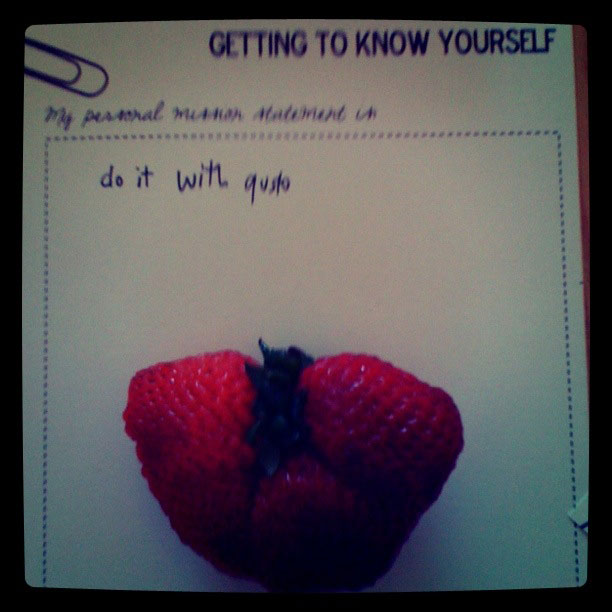 GETTING TO KNOW YOURSELF
My personal mission statement is
do it with gusto